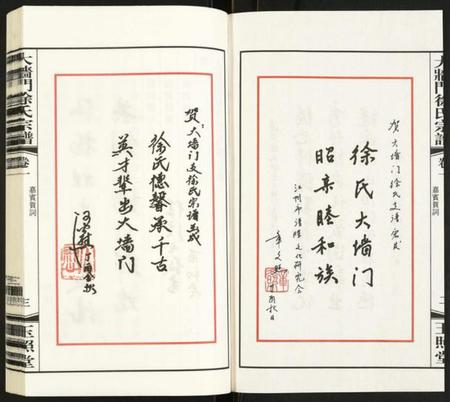 贺大墙门徐氏支谱完成
徐氏大墙门
昭亲睦和族
江州市谱牒文化研究会
大牆門徐氏宗譜
卷一
嘉賓賀詞
二
玉照堂
贺大墙门支徐氏宗谱告成
徐氏德馨承千古
英才辈出大墙门
丁酉金秋
大牆門徐氏宗譜
卷一
嘉賓賀詞
三
玉照堂